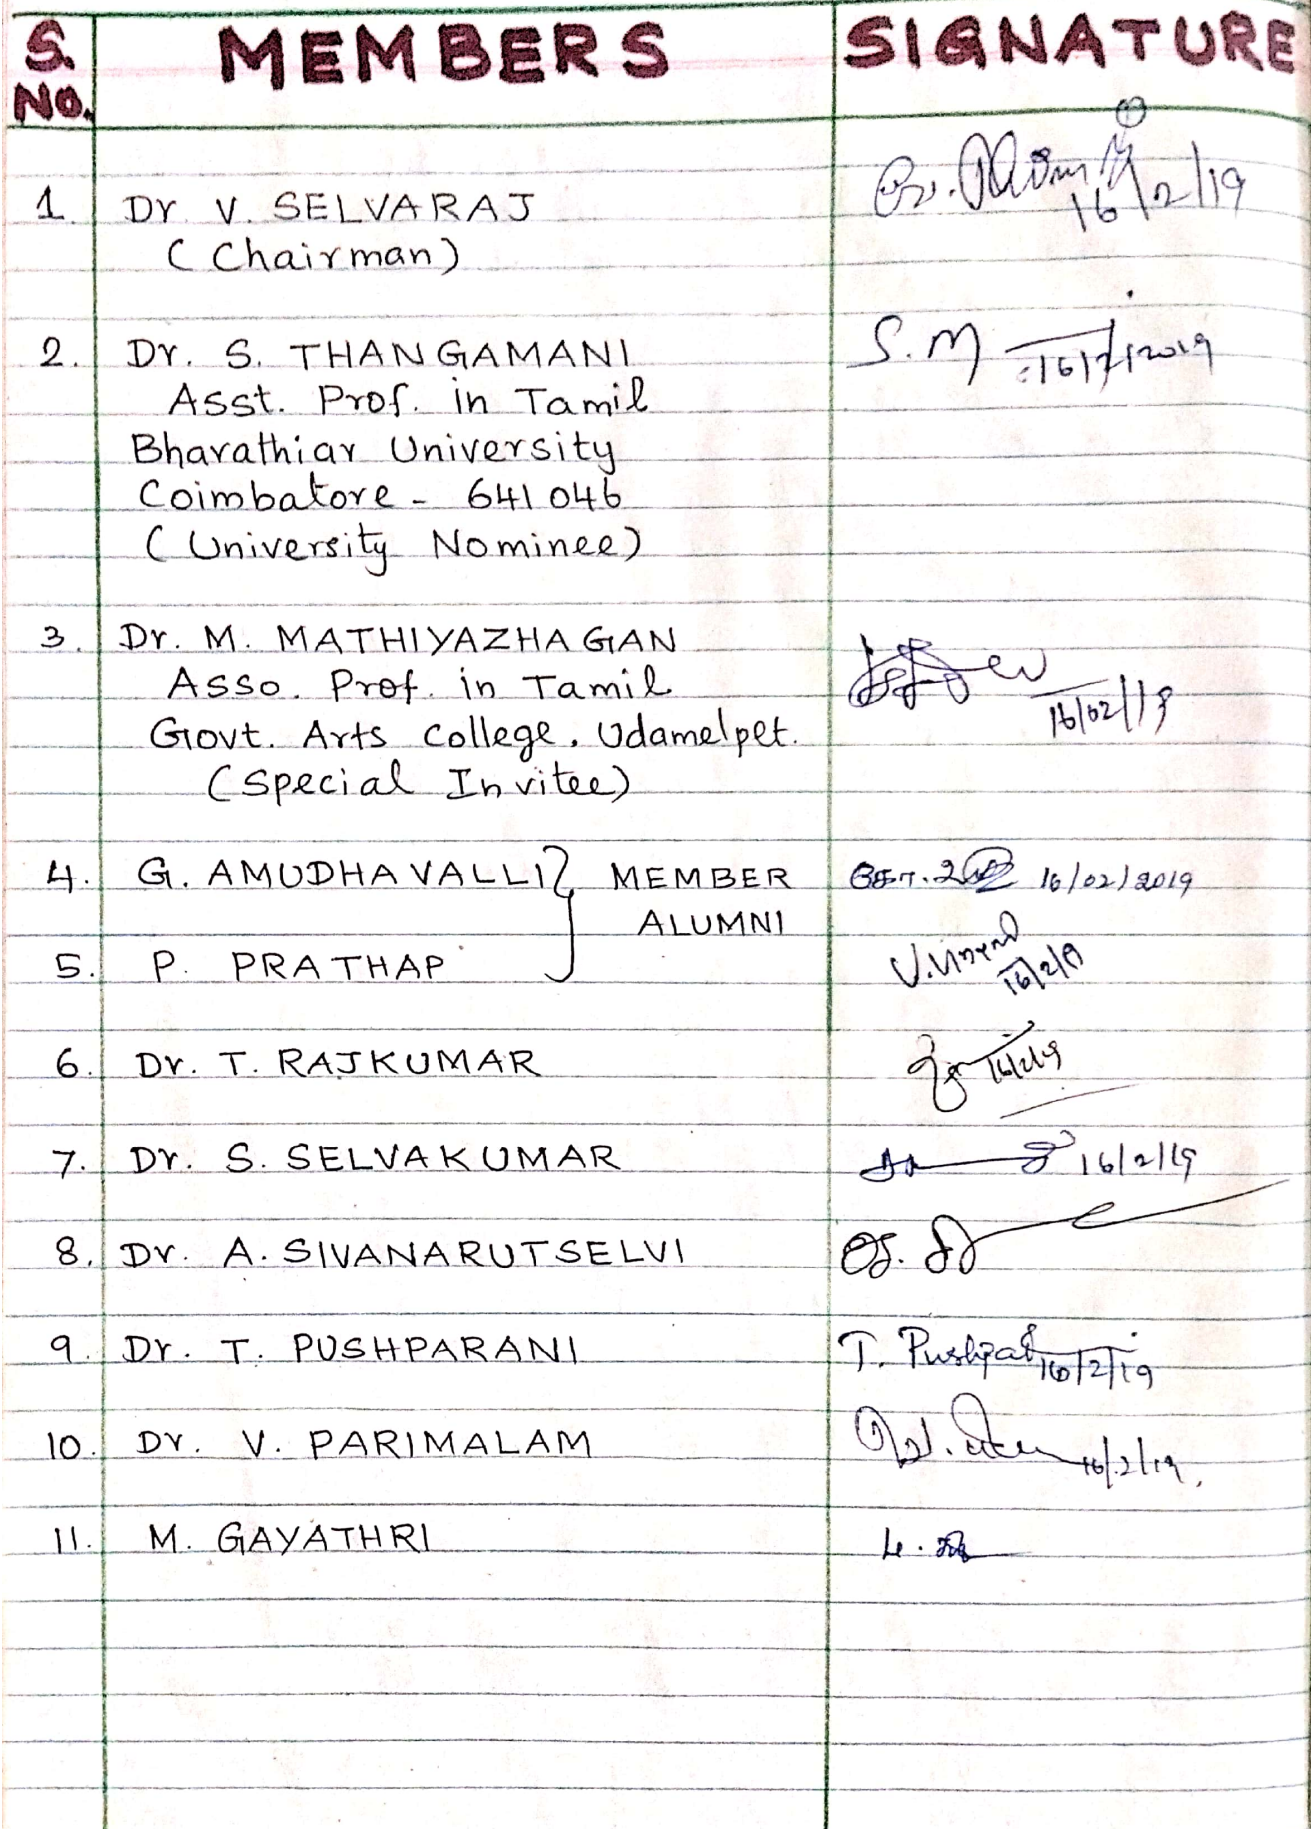 S. NO. MEMBERS SIGNATURE
1. Dr. V. SELVARAJ 16/2/19
(Chairman)
2. Dr. S. THANGAMANI S.M 16/2/2019
Asst. Prof. in Tamil
Bharathiar University
Coimbatore - 641 046
(University Nominee)
3. Dr. M. MATHIYAZHAGAN
Asso. Prof. in Tamil 16/02/19
Govt. Arts College, Udamelpet.
(Special Invitee)
4. G. AMUDHAVALLI } MEMBER கோ. 16/02/2019
ALUMNI
5. P. PRATHAP 16/2/19
6. Dr. T. RAJKUMAR 16/2/19
7. Dr. S. SELVAKUMAR 16/2/19
8. Dr. A. SIVANARUTSELVI
9. Dr. T. PUSHPARANI T. 16/2/19
10. Dr. V. PARIMALAM 16/2/19.
11. M. GAYATHRI